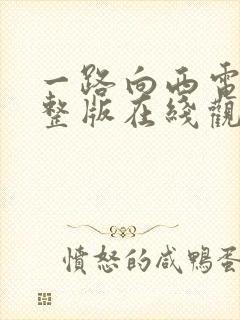 一路向西電
整版在綫觀
憤怒的咸鴨蛋